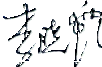 李晓帆